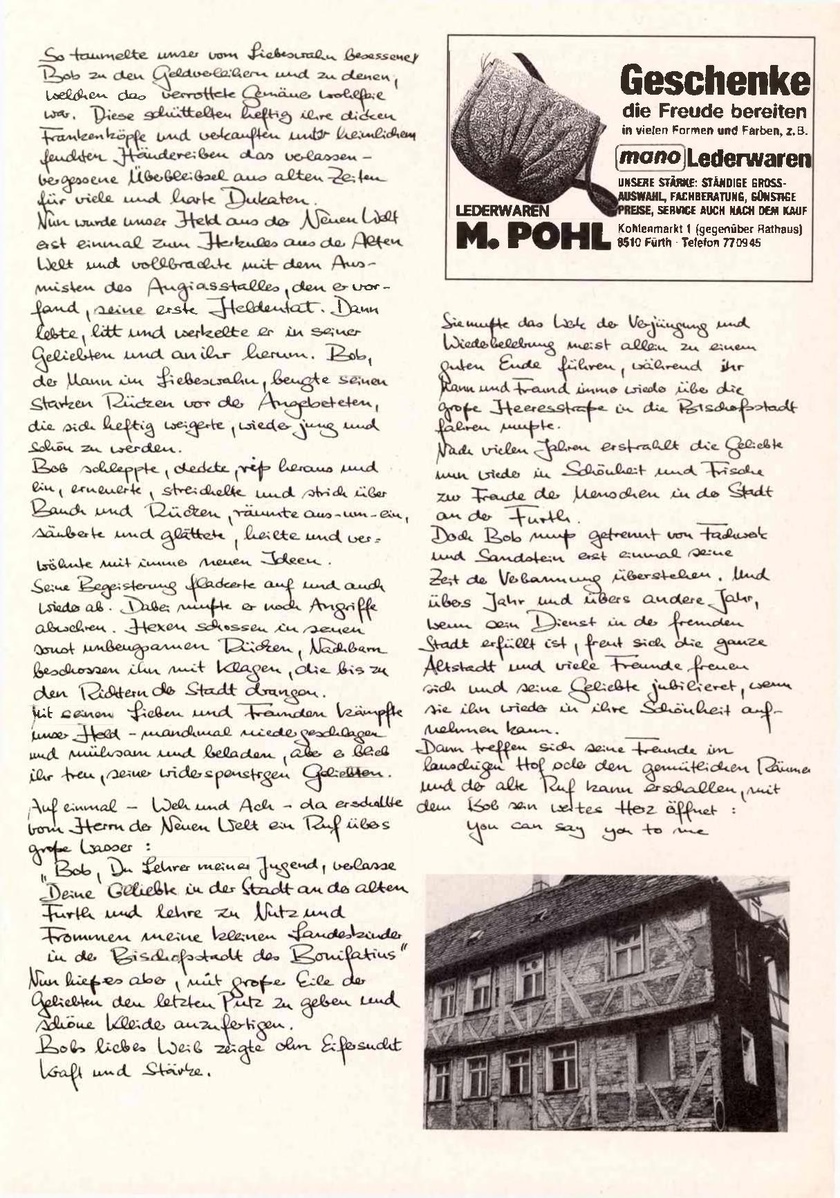 So taumelte unser vom Liebeswahn besessener
Bob zu den Geldverleihern und zu denen,
welchen das verrottete Gemäuer wohlfeile
war. Diese schüttelten heftig ihre dicken
Frankenköpfe und verkauften unter heimlichem
feuchten Händereiben das verlassen-
vergessene Überbleibsel aus alten Zeiten
für viele und harte Dukaten.
Nun wurde unser Held aus der Neuen Welt
erst einmal zum Herkules aus der Alten
Welt und vollbrachte mit dem Aus-
misten des Augiasstalles, den er vor-
fand, seine erste Heldentat. Dann
lebte, litt und werkelte er in seiner
Geliebten und an ihr herum. Bob,
der Mann im Liebeswahn, beugte seinen
starken Rücken vor der Angebeteten,
die sich heftig weigerte, wieder jung und
schön zu werden.
Bob schleppte, deckte, riß heraus und
ein, erneuerte, streichelte und strich über
Bauch und Rücken, räumte aus-um-ein,
säuberte und glättete, heilte und ver=
wöhnte mit immer neuen Ideen.
Seine Begeisterung flackerte auf und auch
wieder ab. Dabei mußte er noch Angriffe
abwehren. Hexen schossen in seinen
sonst unbeugsamen Rücken, Nachbarn
beschossen ihn mit Klagen, die bis zu
den Richtern der Stadt drangen.
Mit seinen Lieben und Freunden kämpfte
unser Held - manchmal niedergeschlagen
und mühsam und beladen, aber er blieb
ihr treu, seiner widerspenstigen Geliebten.
Auf einmal - Weh und Ach - da erschallte
vom Herrn der Neuen Welt ein Ruf übers
große Wasser:
"Bob, Du Lehrer meiner Jugend, verlasse
Deine Geliebte in der Stadt an der alten
Furth und lehre zu Nutz und
Frommen meine kleinen Landeskinder
in der Bischofsstadt des Bonifatius"
Nun hieß es aber, mit großer Eile der
Geliebten den letzten Putz zu geben und
schöne Kleider anzufertigen.
Bobs liebes Weib zeigte ohn Eifersucht
Kraft und Stärke.
Geschenke
die Freude bereiten
in vielen Formen und Farben, z.B.
mano Lederwaren
UNSERE STÄRKE: STÄNDIGE GROSS-
AUSWAHL, FACHBERATUNG, GÜNSTIGE
PREISE, SERVICE AUCH NACH DEM KAUF
LEDERWAREN
M. POHL
Kohlenmarkt 1 (gegenüber Rathaus)
8510 Fürth · Telefon 770945
Sie mußte das Werk der Verjüngung und
Wiederbelebung meist allein zu einem
guten Ende führen, während ihr
Mann und Freund immer wieder über die
große Heeresstraße in die Bischofsstadt
fahren mußte.
Nach vielen Jahren erstrahlt die Geliebte
nun wieder in Schönheit und Frische
zur Freude der Menschen in der Stadt
an der Furth.
Doch Bob muß getrennt von Fachwerk
und Sandstein erst einmal seine
Zeit der Verbannung überstehen. Und
übers Jahr und übers andere Jahr,
wenn sein Dienst in der fremden
Stadt erfüllt ist, freut sich die ganze
Altstadt und viele Freunde freuen
sich und seine Geliebte jubilieret, wenn
sie ihn wieder in ihre Schönheit auf-
nehmen kann.
Dann treffen sich seine Freunde im
lauschigen Hof oder den gemütlichen Räumen
und der alte Ruf kann erschallen, mit
dem Bob sein weites Herz öffnet:
You can say you to me